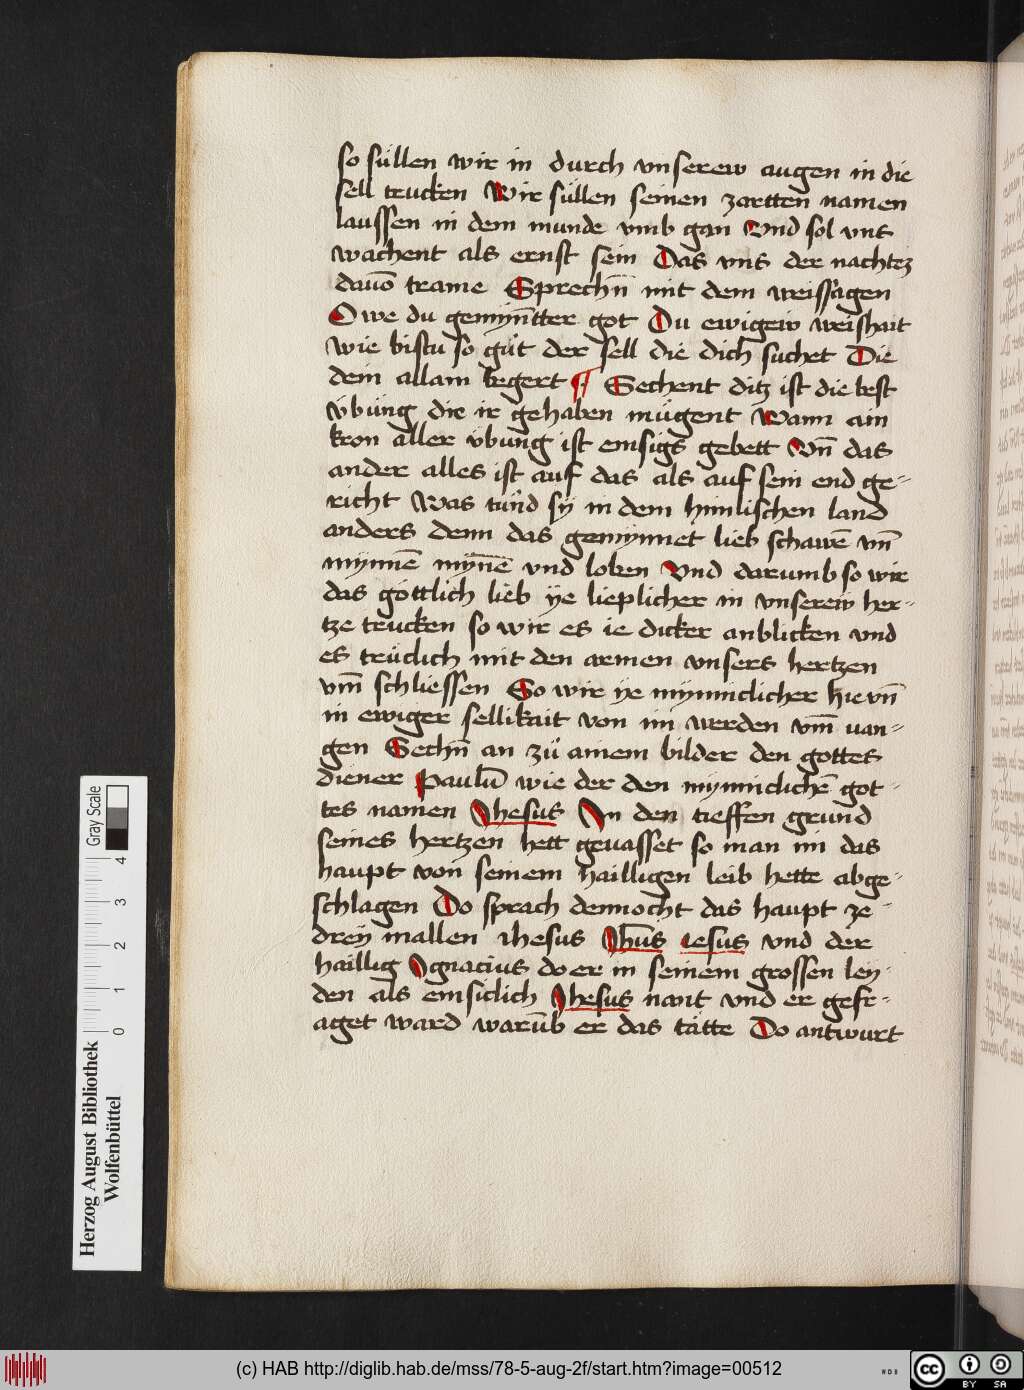 so süllen wir in durch vnserew augen in die
sell trucken Wir süllen seinen zartten namen
laussen in dem munde vmb gan Vnd sol vns
wachent als ernst sein Das vns der nachtez
dauō trame Sprechn̄ mit dem weissagen
O we du gemyn̄tter got Du ewigew weishait
wie bistu so gůt der sell die dich suchet Die
dein allain begert ¶ Sechent ditz ist die best
v̈bung die ir gehaben mügent Wann ain
kron aller v̈bung ist emsigs gebett Vn̄ das
ander alles ist auf das als auf sein end ge=
richt Was tůnd sy in dem himlischen land
anders denn das gemynnet lieb schawē vn̄
mynnē mynnē vnd loben Vnd darumb so wir
das göttlich lieb ye lieplicher in vnserew her=
tze trucken so wir es ie dicker anblicken vnd
es trüclich mit den armen vnsers hertzen
vm̄ schliessen So wir ye mynniclicher hie vn̄
in ewiger sellikait von im werden vm̄ uan=
gen Sechn̄ an zů ainem bilder den gottes
diener Paulū wie der den mynniclichē got=
tes namen Jhesus Jn den tieffen grund
seines hertzen hett geuasset so man im das
haupt von seinem hailligen leib hette abge=
schlagen Do sprach dennocht das haupt ze
drey mallen ihesus Jhūs iesus vnd der
haillig Jgnacius do er in seinem grossen ley=
den als emsiclich Jhesus nant vnd er gefr=
aget ward warūb er das tätte Do antwurt
Herzog August Bibliothek
Wolfenbüttel
0 1 2 3 4
Gray Scale
(c) HAB http://diglib.hab.de/mss/78-5-aug-2f/start.htm?image=00512
WDB
cc BY SA